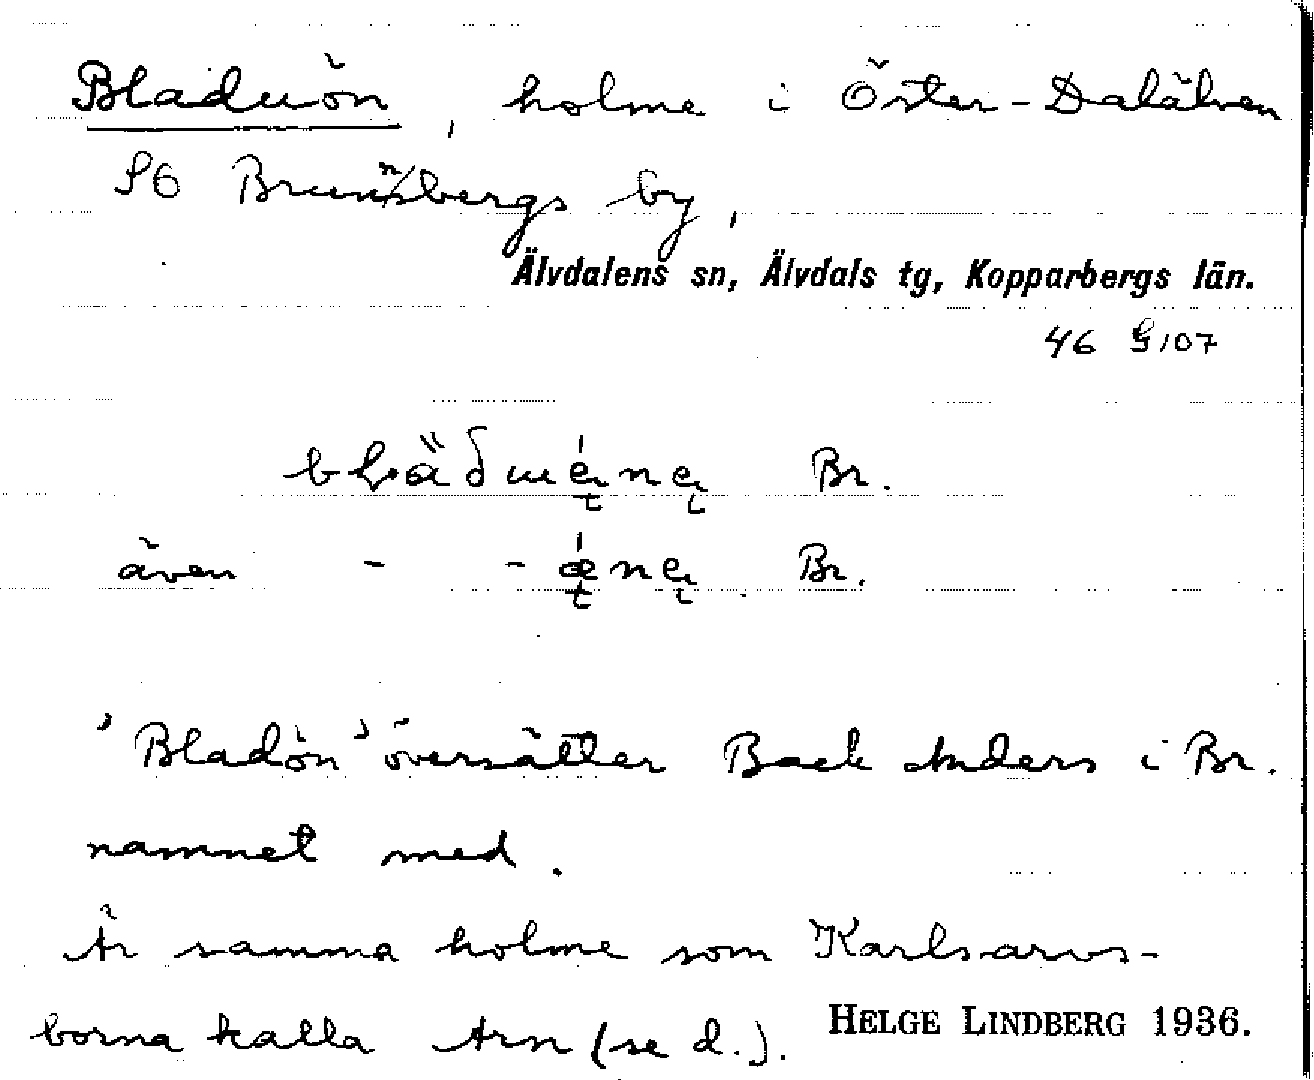 Bladuön, holme i Öster-Dalälven
SÖ Brunnsbergs by,
Älvdalens sn, Älvdals tg, Kopparbergs län.
46 G 107
även - - Br.
'Bladön' översätter Back Anders i Br.
namnet med.
Är samma holme som Karlsarvs-
borna kalla Arn (se d.).
HELGE LINDBERG 1936.